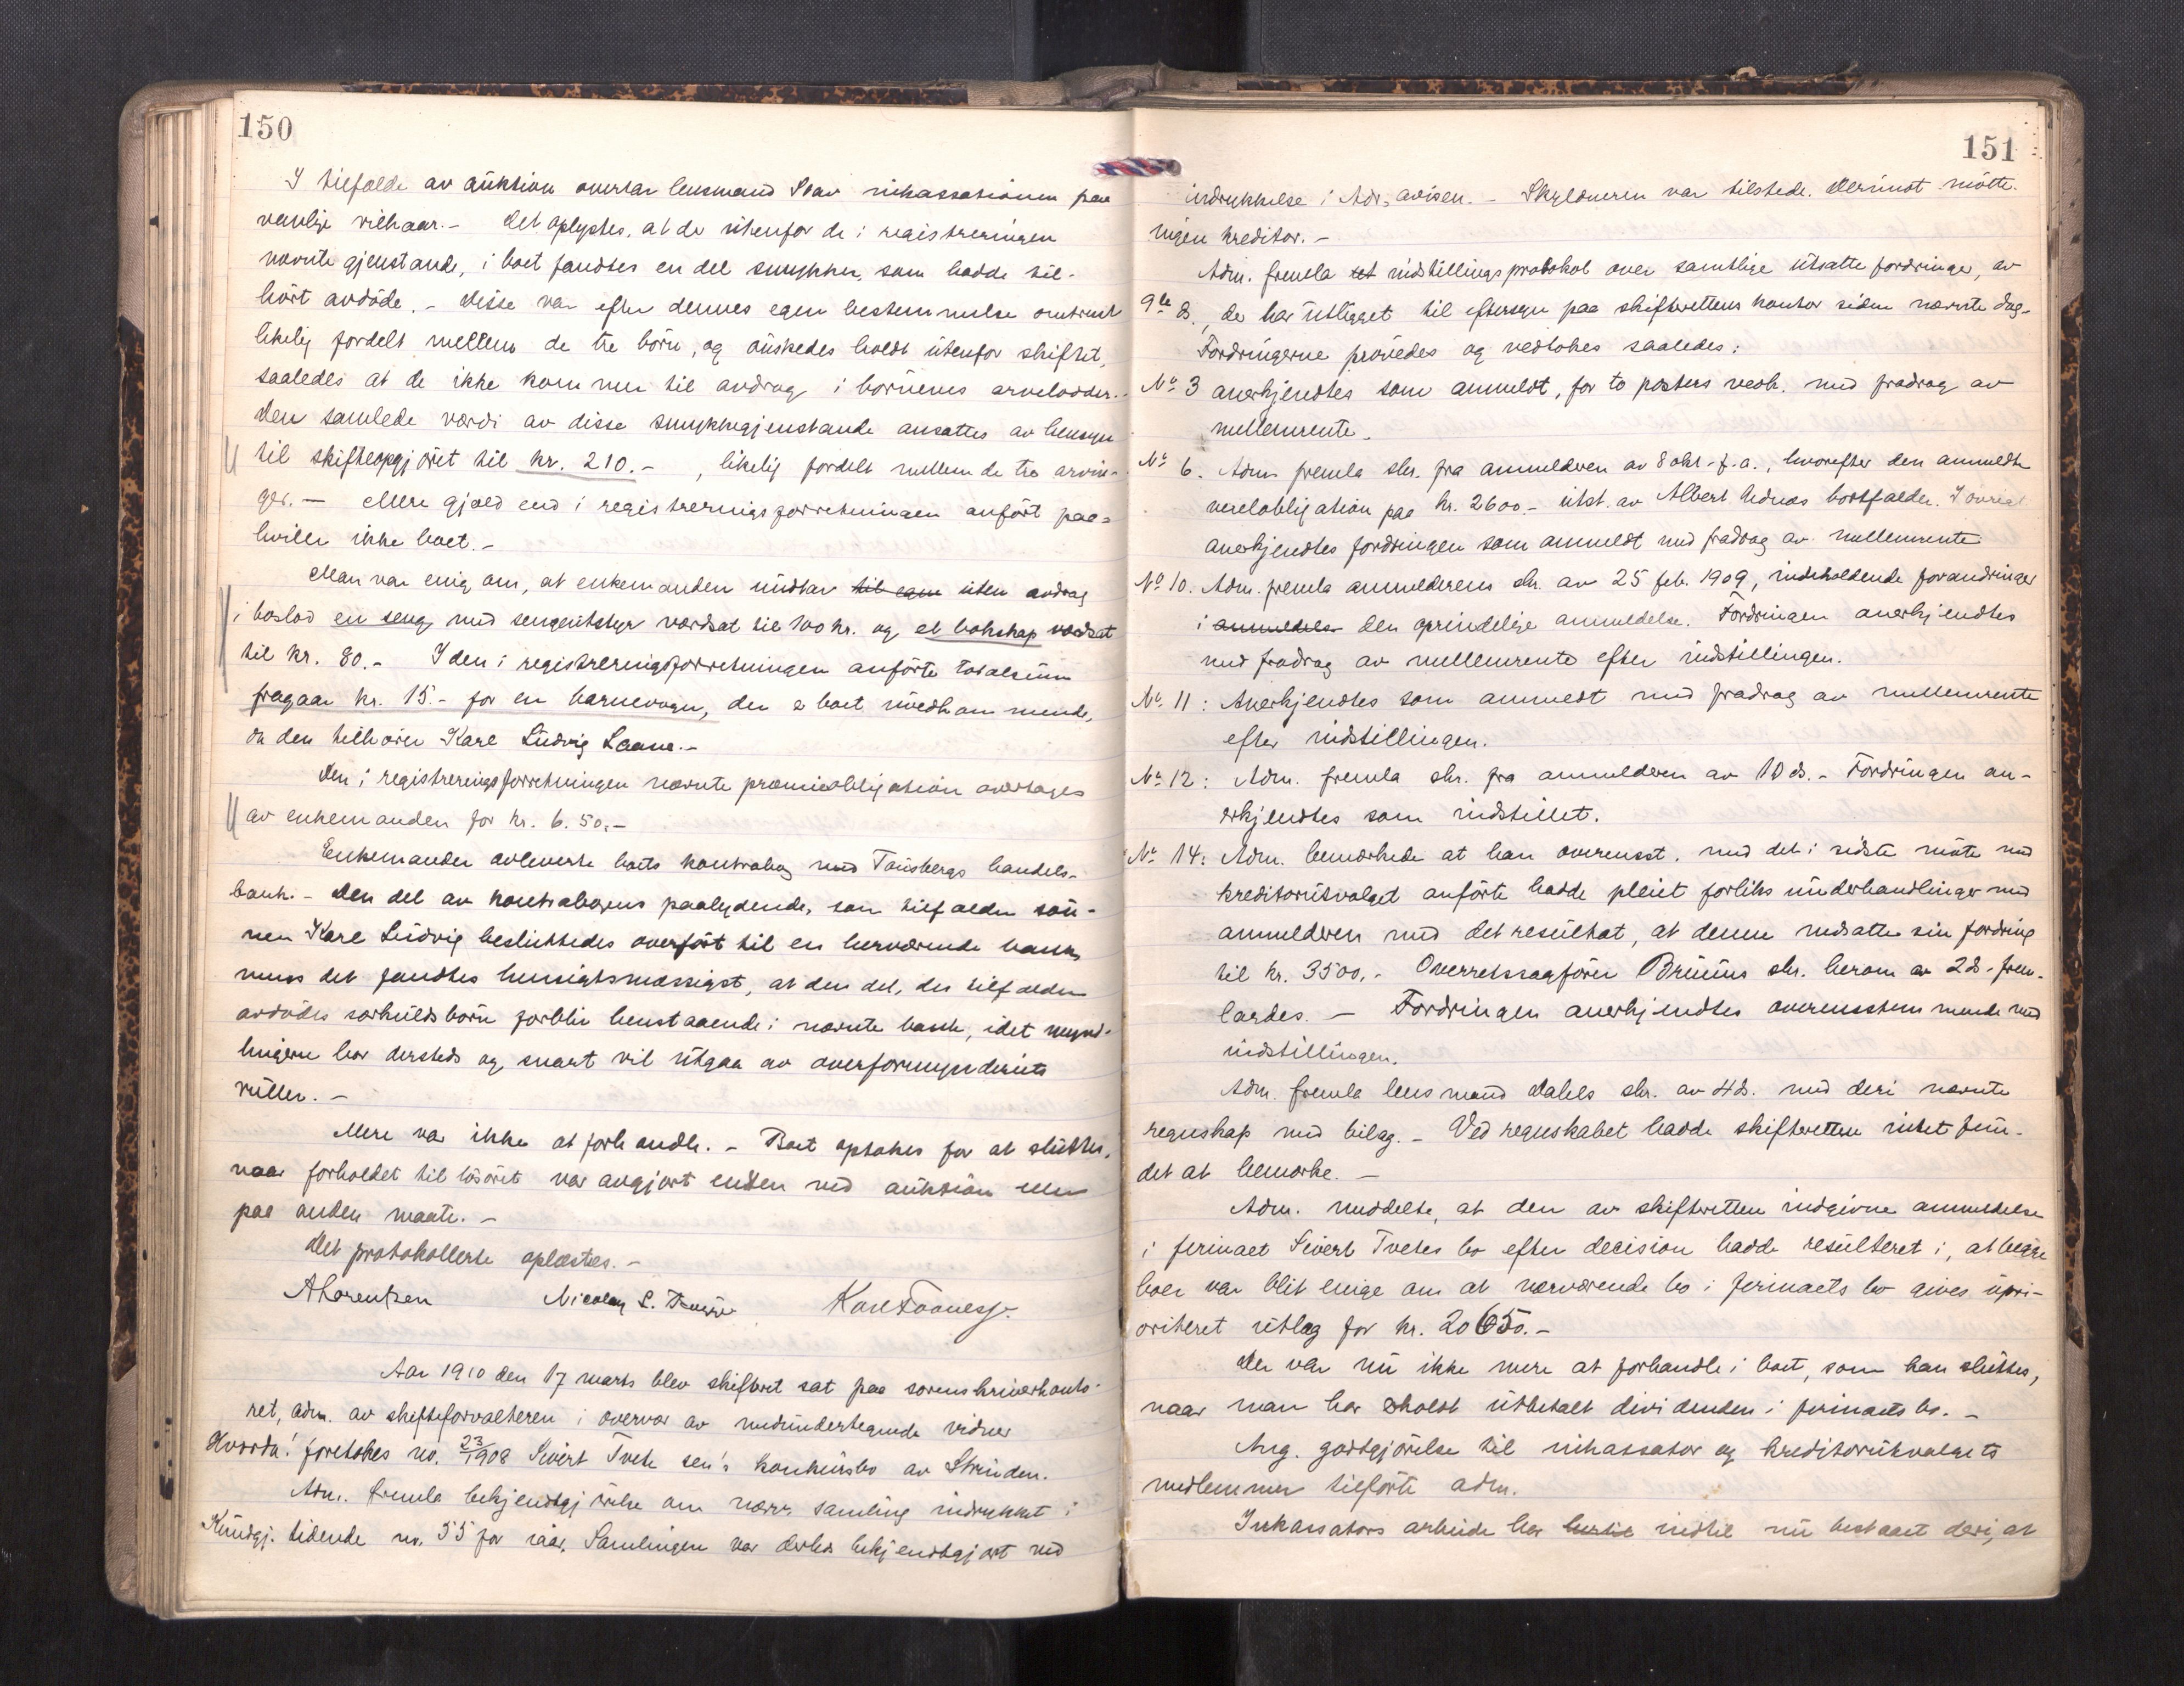 150
I tilfælde av auktion overtar lensmand Svar inkassationen paa
vanlige vilkaar. - Det oplystes, at der utenfor de i registreringen
nævnte gjenstande, i boet fandtes en del smykker, som hadde til-
hört avdöde. - Disse var efter dennes egen bestemmelse omtrent
likelig fordelt mellem de tre börn, og önskedes holdt utenfor skiftet,
saaledes at de ikke kommer til avdrag i börnenes arvelodder. -
Den samlede værdi av disse smykkegjenstande ansattes av hensyn
til skifteopgjöret til kr. 210. - , likelig fordelt mellem de tre arvin-
ger. - Mere gjæld end i registreringsforretningen anfört paa-
hviler ikke boet. -
Man var enig om, at enkemanden uttar til eget uten avdrag
i boslod en seng med sengeutstyr værdsat til 100 kr. og et bokskap værdsat
til kr. 80. - I den i registreringsforretningen anförte totalsum
fragaar kr. 15. - for en barnevogn, der er boet uvedkommende,
da den tilhörer Kare Ludvig Laane. -
Den i registreringsforretningen nævnte præmieobligation overtages
av enkemanden for kr. 6.50. -
Enkemanden avleverte boets kontrabog med Tönsbergs handels-
bank. - Den del av kontrabogens paalydende, som tilfalder sön-
nen Kare Ludvig besluttedes overfört til en herværende bank,
mens det fandtes hensigtsmæssigst, at den del, der tilfalder
avdödes særkuldsbörn forblir henstaaende i nævnte bank, idet mynd-
lingerne bor dersteds og snart vil utgaa av overformynderiets
ruller. -
Mere var ikke at forhandle. - Boet optokes for at sluttes,
naar forholdet til lösöret var avgjort enten ved auktion eller
paa anden maate. -
Det protokollerte oplæstes. -
A Lorentzen Nicolay S. Karl
Aar 1910 den 17 marts blev skifteret sat paa sorenskriverkonto-
ret, adm. av skifteforvalteren i overvær av medundertegnede vidner
Hvorda! foretokes no. 23/1908 Sivert Tvete sen's konkursbo av Strinden.
Adm. fremla bekjendtgjörelse om nærv. samling indrykket i
Kundgj. tidende no. 55 for iaar. Samlingen var derhos bekjendtgjort ved
151
indrykkelse i Adr. avisen. - Skyldneren var tilstede. Derimot mötte
ingen kreditor. -
Adm. fremla et indstillingsprotokol over samtlige utsatte fordringer, av
9de ds., der har utligget til eftersyn paa skifterettens kontor siden nævnte dag. -
Fordringerne prövedes og vedtokes saaledes:
No. 3 anerkjendtes som anmeldt, for to posters vedk. med fradrag av
mellemrente.
No. 6. Adm. fremla skr. fra anmelderen av 8 okt. f.a., hvorefter den anmeldte
vexelobligation paa kr. 2600. - utst. av Albert bortfalder. I övrigt
anerkjendtes fordringen som anmeldt med fradrag av mellemrente
No. 10. Adm. fremla anmelderens skr. av 25 feb. 1909, indeholdende forandringer
i anmeldels den oprindelige anmeldelse. Fordringen anerkjendtes
med fradrag av mellemrente efter indstillingen.
No. 11: Anerkjendtes som anmeldt med fradrag av mellemrente
efter indstillingen.
No. 12: Adm. fremla skr. fra anmelderen av 10 ds. - Fordringen an-
erkjendtes som indstillet.
No. 14: Adm. bemærkede at han overensst. med det i sidste möte med
kreditorutvalget anförte hadde pleiet forliks underhandlinger med
anmelderen med det resultat, at denne nedsatte sin fordring
til kr. 3500. - Overretssagförer Bruuns skr. herom av 2 ds. frem-
lagdes. - Fordringen anerkjendtes overensstemmende med
indstillingen.
Adm. fremla lensmand Dahls skr. av 4 ds. med deri nævnte
regnskap med bilag. - Ved regnskabet hadde skifteretten intet fun-
det at bemerke. -
Adm. meddelte, at den av skifteretten indgivne anmeldelse
i firmaet Sivert Tvetes bo efter decision hadde resulteret i, at begge
boer var blit enige om at nærværende bo i firmaets bo gives upri-
oriteret utlæg for kr. 20650. -
Der var nu ikke mere at forhandle i boet, som kan sluttes,
naar man har erholdt utbetalt dividenden i firmaets bo. -
Ang. godtgjörelse til inkassator og kreditorutvalgets
medlemmer tilförte adm.
Inkassators arbeide har hertil indtil nu bestaaet deri, at